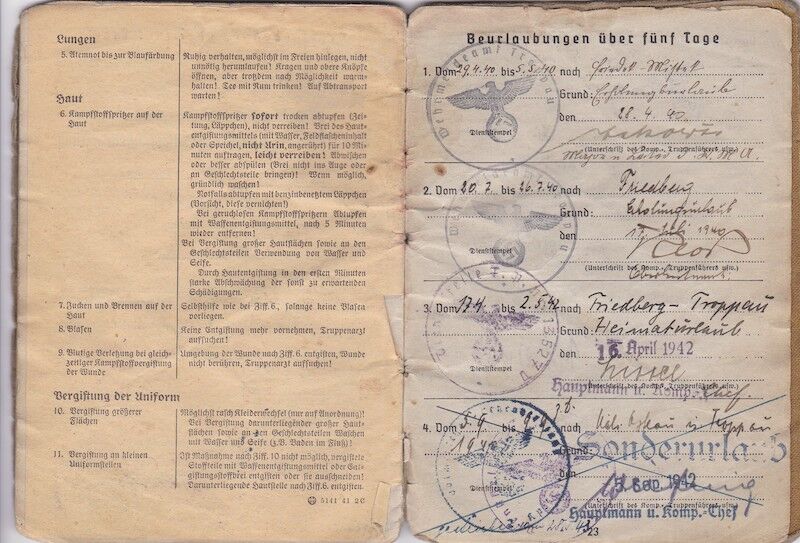 Lungen
5. Atemnot bis zur Blaufärbung
Ruhig verhalten, möglichst im Freien hinlegen, nicht
unnötig herumlaufen! Kragen und obere Knöpfe
öffnen, aber trotzdem nach Möglichkeit warm-
halten! Tee mit Rum trinken! Auf Abtransport
warten!
Haut
6. Kampfstoffspritzer auf der
Haut
Kampfstoffspritzer sofort trocken abtupfen (Zei-
tung, Läppchen), nicht verreiben! Brei des Haut-
entgiftungsmittels (mit Wasser, Feldflascheninhalt
oder Speichel, nicht Urin, angerührt) für 10
Minuten auftragen, leicht verreiben! Abwischen
oder besser abspülen (Brei nicht ins Auge oder
an Geschlechtsteile bringen)! Wenn möglich,
gründlich waschen!
Notfalls abtupfen mit benzinbenetztem Läppchen
(Vorsicht, diese vernichten!)
Bei geruchlosen Kampfstoffspritzern Abtupfen
mit Waffenentgiftungsmittel, nach 5 Minuten
wieder entfernen!
Bei Vergiftung großer Hautflächen sowie an den
Geschlechtsteilen Verwendung von Wasser und
Seife.
Durch Hautentgiftung in den ersten Minuten
starke Abschwächung der sonst zu erwartenden
Schädigungen.
7. Jucken und Brennen auf der
Haut
Selbsthilfe wie bei Ziff. 6, solange keine Blasen
vorliegen.
8. Blasen
Keine Entgiftung mehr vornehmen, Truppenarzt
aufsuchen!
9. Blutige Verletzung bei gleich-
zeitiger Kampfstoffvergiftung
der Wunde
Umgebung der Wunde nach Ziff. 6 entgiften, Wunde
nicht berühren, Truppenarzt aufsuchen!
Vergiftung der Uniform
10. Vergiftung größerer
Flächen
Möglichst rasch Kleiderwechsel (nur auf Anordnung)!
Bei Vergiftung darunterliegender großer Haut-
flächen sowie an den Geschlechtsteilen Waschen
mit Wasser und Seife (z.B. Baden im Fluß)!
11. Vergiftung an kleinen
Uniformstellen
Ist Maßnahme nach Ziff. 10 nicht möglich, vergiftete
Stoffteile mit Waffenentgiftungsmittel oder Ent-
giftungsstoffbrei entgiften oder sie ausschneiden!
Darunterliegende Hautstelle nach Ziff. 6 entgiften.
5141 41 2C
Beurlaubungen über fünf Tage
1. Vom 29.4.40 bis 5.5.40 nach
Grund:
den 28.4.40
Dienststempel
(Unterschrift des Komp.-, Truppenführers usw.)
2. Vom 20.7. bis 26.7.40 nach Friedberg
Grund: Erholungsurlaub
den 17. Juli 1940
Dienststempel
(Unterschrift des Komp.-, Truppenführers usw.)
3. Vom 17.4. bis 2.5.42 nach Friedberg - Troppau
Grund: Heimaturlaub
den 16. April 1942
Dienststempel
(Unterschrift des Komp.-, Truppenführers usw.)
Hauptmann u. Komp.-Chef.
4. Vom bis nach
Troppau
Grund: Sonderurlaub
den 3. Sep. 1942
Dienststempel
(Unterschrift des Komp.-, Truppenführers usw.)
Hauptmann u. Komp.-Chef
23